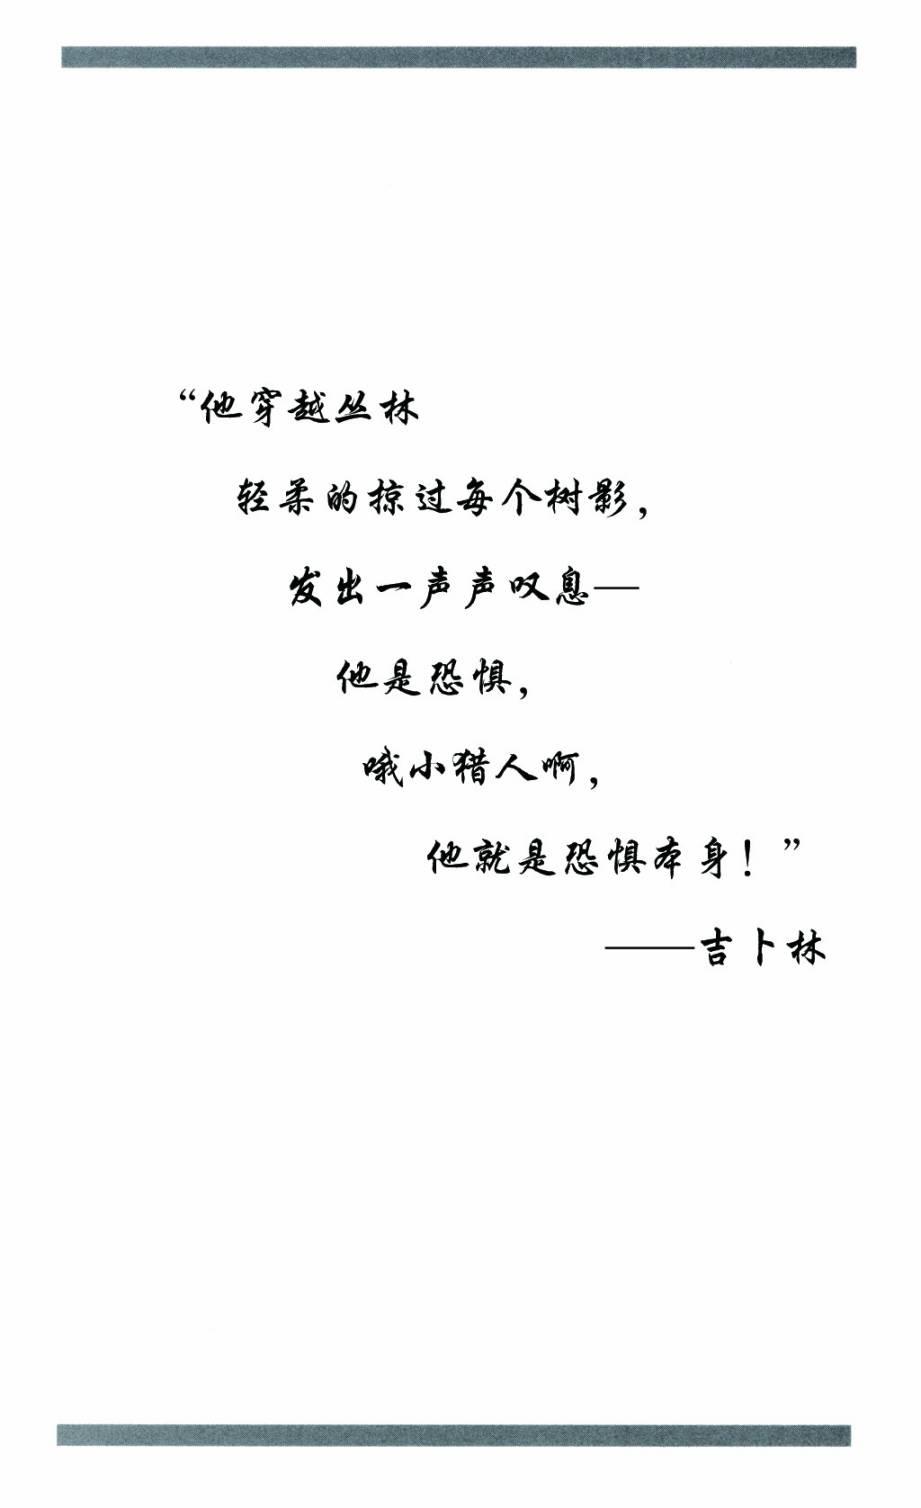 “他穿越丛林
轻柔的掠过每个树影，
发出一声声叹息—
他是恐惧，
哦小猎人啊，
他就是恐惧本身！”
——吉卜林